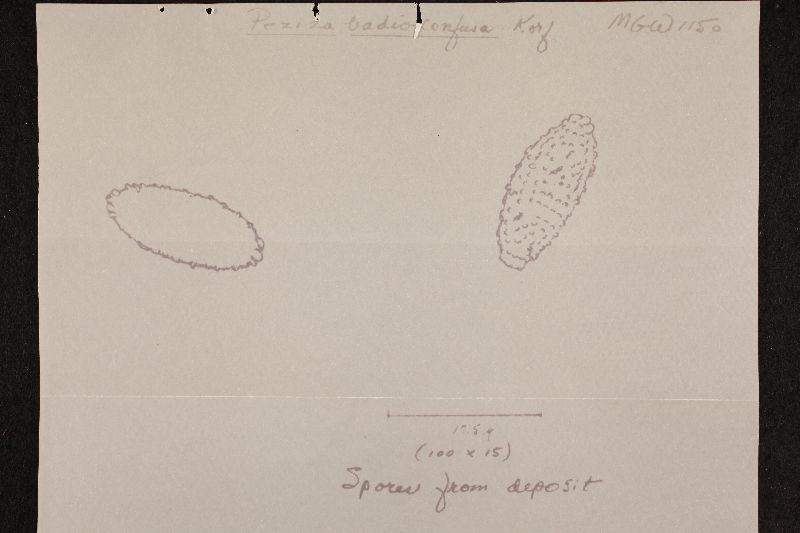 Peziza badioconfusa Korf MGW 1150
17.5 µ
(100 x 15)
Spores from deposit